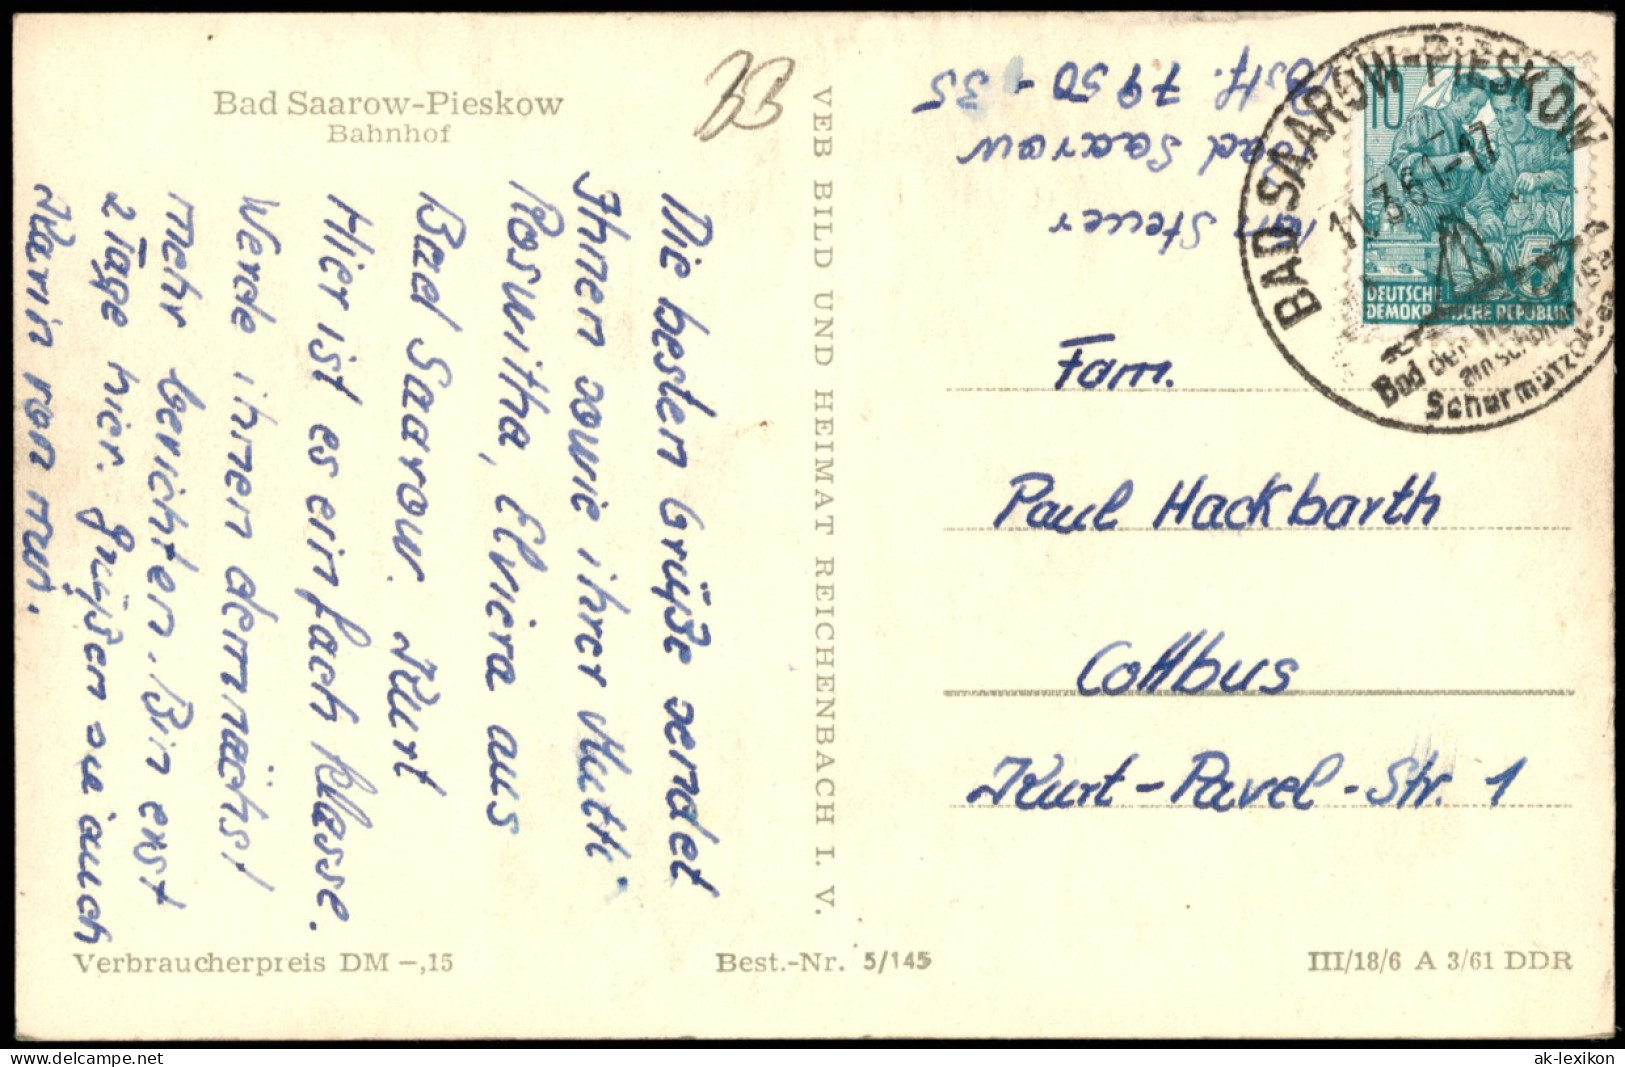 Bad Saarow-Pieskow
Bahnhof
33
Die besten Grüße sendet
Ihnen sowie ihrer Mutti
Roswitha, Elvira aus
Bad Saarow. Kurt
Hier ist es einfach Klasse.
Werde ihnen demnächst
mehr berichten. Bin erst
2 Tage hier. grüßen sie auch
Karin von mir.
VEB BILD UND HEIMAT REICHENBACH I. V.
Steuer
Bad Saarow
Postf. 7950-35
BAD SAAROW-PIESKOW
11.3.61-17
Bad der
am schönen
Scharmützelsee
10
5
DEUTSCHE
DEMOKRATISCHE REPUBLIK
Fam.
Paul Hackbarth
Cottbus
Kurt-Pavel-Str. 1
Verbraucherpreis DM -,15
Best.-Nr. 5/145
III/18/6 A 3/61 DDR
ak-lexikon